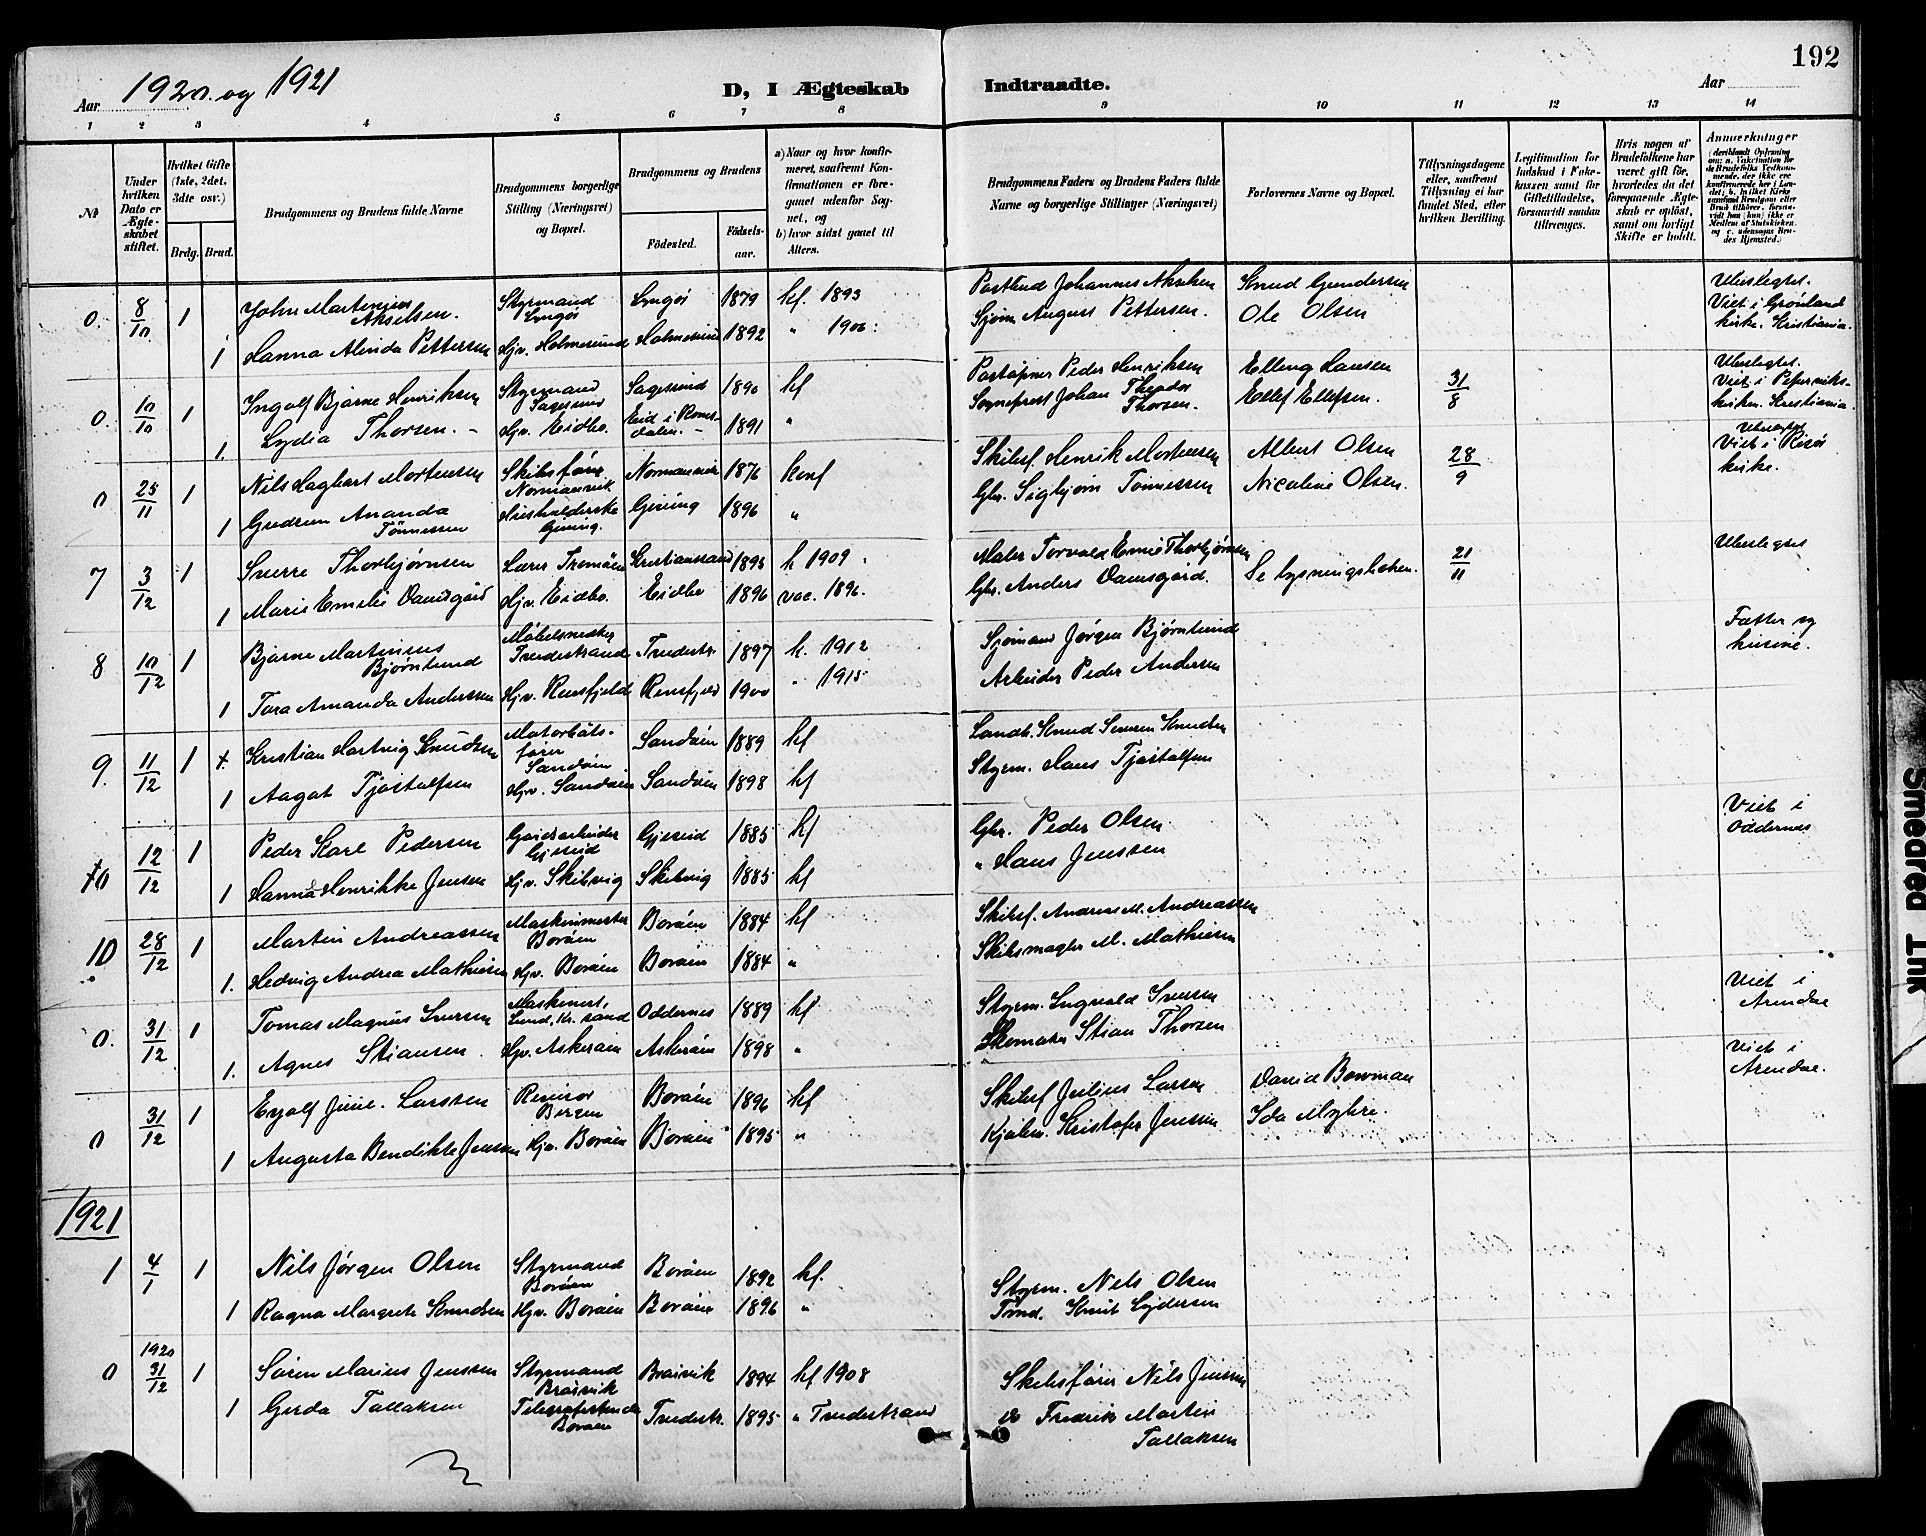 192
Aar 1920 og 1921
D, I Ægteskab Indtraadte.
Aar
1 2 3 4 5 6 7 8 9 10 11 12 13 14
No
Under hvilken Dato er Ægteskabet stiftet.
Hvilket Gifte (1ste, 2det, 3die osv.)
Brdg. Brud.
Brudgommens og Brudens fulde Navne
Brudgommens borgerlige Stilling (Næringsvei) og Bopæl.
Brudgommens og Brudens
Fødested.
Fødselsaar.
a) Naar og hvor konfirmeret, saafremt Konfirmationen er foregaaet udenfor Sognet, og
b) hvor sidst gaaet til Alters.
Brudgommens Faders og Brudens Faders fulde Navne og borgerlige Stillinger (Næringsvei)
Forlovernes Navne og Bopæl.
Tillysningsdagene eller, saafremt Tillysning ei har fundet Sted, efter hvilken Bevilling.
Legitimation for Indskud i Enkekassen samt for Giftetilladelse, forsaavidt saadan tiltrænges.
Hvis nogen af Brudefolkene har været gift før, hvorledes da det foregaaende Ægteskab er opløst, samt om lovligt Skifte er holdt.
Anmerkninger
0. 8/10 1 John Martinius Akselsen. Styrmand Lyngör Lyngör 1879 kf. 1893 Johannes Akselsen Knud Gundersen Ubeslegtet. Viet i Grönland kirke. Kristiania.
1 Hanna Alvida Pettersen Hjv. Holmesund Holmesund 1892 " 1906 Sjöm. August Pettersen. Ole Olsen
0. 10/10 1 Ingolf Bjarne Henriksen Styrmand Sagesund Sagesund 1890 kf Poståpner Peder Henriksen Elling Hansen 31/8 Ubeslegtet. Viet i kirken. Kristiania.
1. Lydia Thorsen. Hjv. Eidbo. Eid i Romsdalen. 1891 " Sogneprest Johan Theodor Thorsen. Ellef Ellefsen.
0 25/11 1 Nils Hagbart Mortensen Skibsförer Normannvik Normannvik 1876 konf Skibsf. Henrik Mortensen Albert Olsen 28/9 Ubeslegtet Viet i Risör kirke.
1 Gudrun Amanda Tönnessen Husholderske Gjeving. Gjeving 1896 " Gbr. Sigbjörn Tönnessen Nicoline Olsen.
7 3/12 1 Sverre Thorbjörnsen Lærer Tromöen Kristianssand 1895 k 1909 Maler Torvald Emil Thorbjörnsen Se lysningsboken. 21/11 Ubeslegtet
1 Marie Emilie Damsgård Hjv. Eidbo. Eidbo 1896 vac. 1896. Gbr. Anders Damsgård.
8 10/12 1 Bjarne Martinius Björnlund Möbelsnedker Tvedestrand Tvedestr. 1897 k. 1912 Sjömand Jörgen Björnlund Fætter og kusine.
1 Tora Amanda Anderssen Hjv. Rensfjeld Rensfjeld 1900 " 1915 Arbeider Peder Andersen
9. 11/12 1 Kristian Hartvig Knudsen Motorbåtsförer Sandöen Sandöen 1889 kf Landb. Knud Knudsen
1 Aagot Tjöstolfsen Hjv. Sandöen Sandöen 1898 kf Styrm. Hans Tjöstolfsen
12/12 1 Peder Karl Pedersen Gårdsarbeider Gjeseid Gjeseid 1885 kf Gbr. Peder Olsen Viet i Oddernes
1 Hanna Henrikke Jensen Hjv. Skibvig Skibvig 1885 kf " Hans Jenssen
10 28/12 1 Martin Andreassen Maskinmester Boröen Boröen 1884 kf Skibsf. Andreas M. Andreassen
1. Hedvig Andrea Mathiesen Hjv. Boröen Boröen 1884 " Skibsmægler M. Mathiesen
0. 31/12 1 Tomas Magnus Iversen Maskinest, Lund, Kr.sand Oddernes 1889 kf Styrm. Ingvald Iversen Viet i Arendal
1. Agnes Stiansen. Hjv. Askeröen Askeröen 1898 " Skomaker Stian Thorsen
0 31/12 1 Eyolf Juul. Larssen Revisor Bergen Boröen 1896 kf Skibsf Julius Larsen David Bowman Viet i Arendal.
1 Augusta Bendikte Jenssen Hjv. Boröen Boröen 1895 " Kristofer Jenssen Ida Myhre.
1921
1 4/1 1 Nils Jørgen Olsen Styrmand Boröen Boröen 1892 kf. Styrm. Nils Olsen
1 Ragna Margrete Knudsen Hjv. Boröen Boröen 1896 " Tömd. Knut
0 1920 31/12 1 Sören Marius Jenssen Styrmand Bråsvik Bråsvik 1894 kf 1908 Skibsförer Nils Jensen
1 Gerda Tallaksen Boröen Tvedestr. 1895 " Tvedestrand do Fredrik Martin Tallaksen
Smedrød Ink